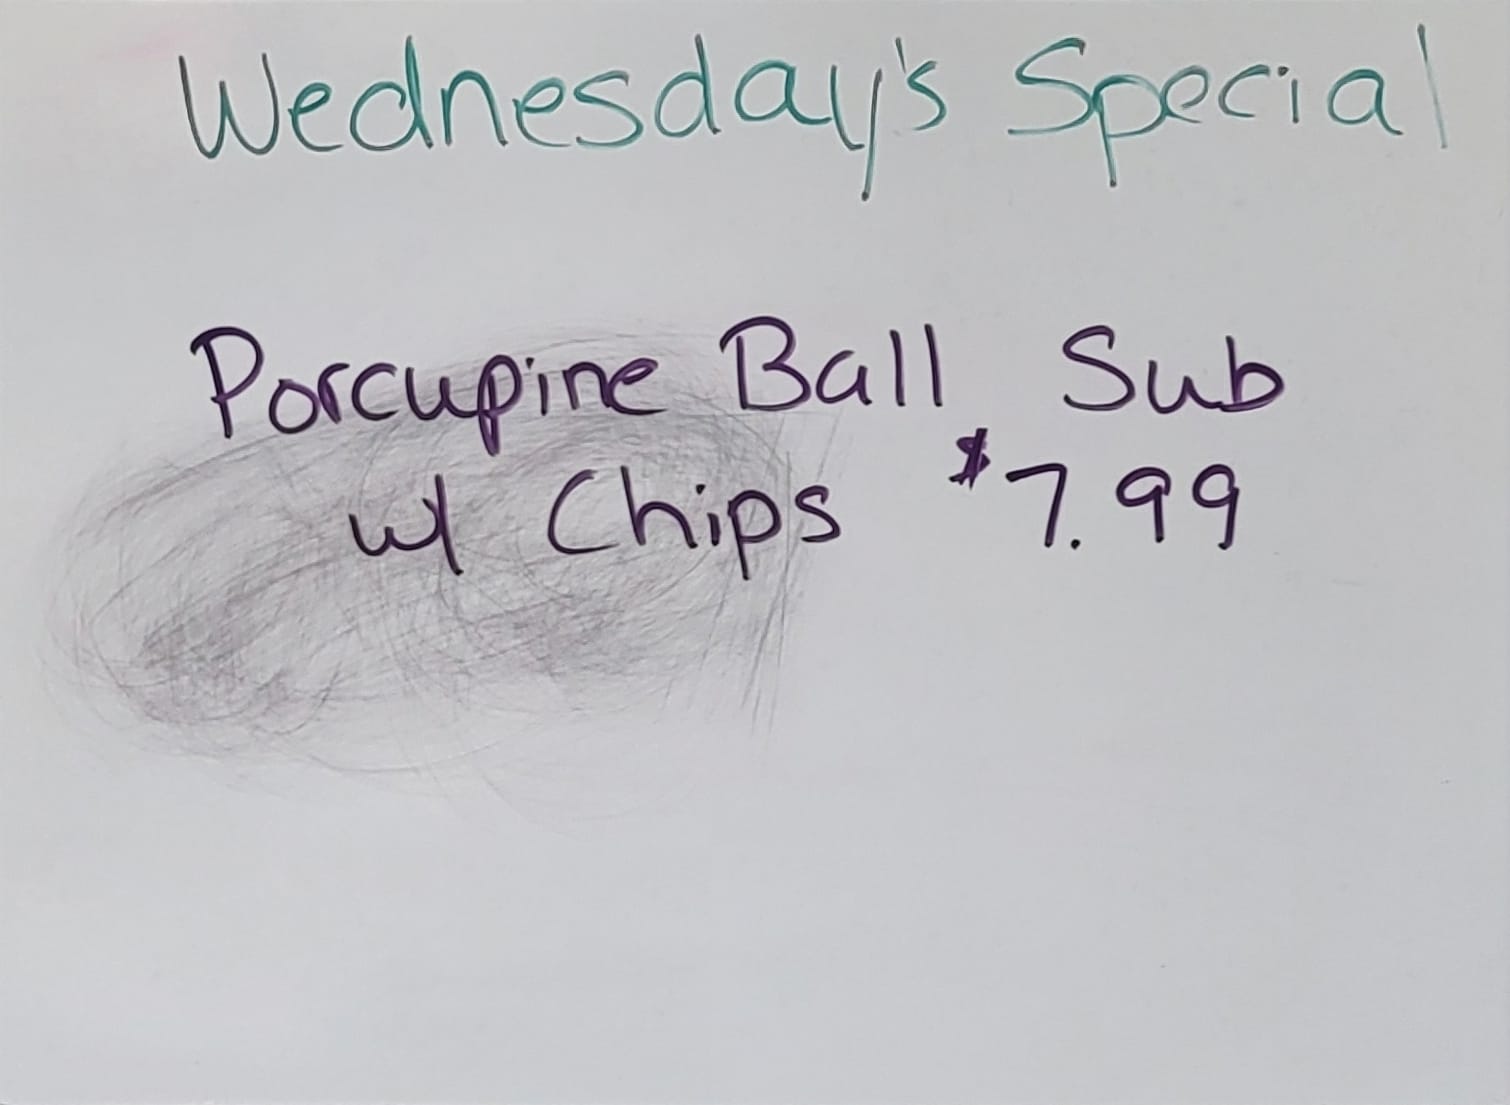 Wednesday's Special
Porcupine Ball Sub
w/ Chips $7.99